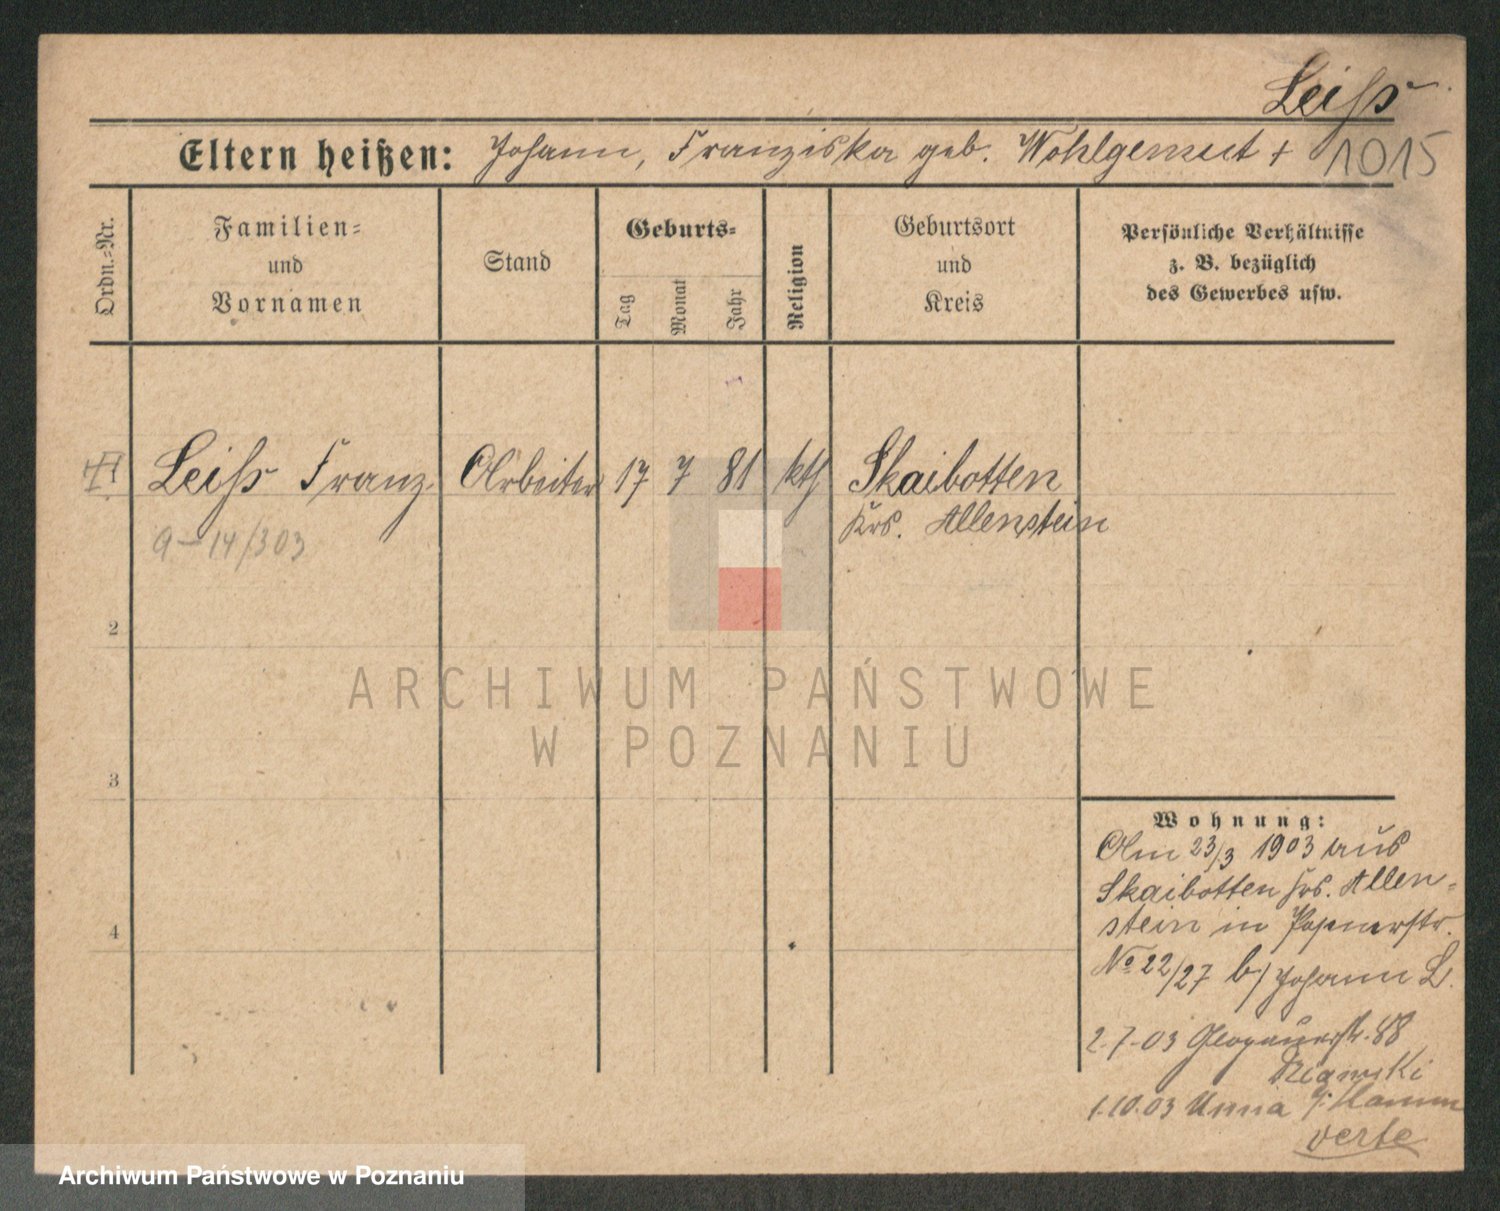 Leiss
Eltern heißen: Johann, Franziska geb. Wohlgemut +
1015
Ordn.-Nr.
Familien-
und
Vornamen
Stand
Geburts-
Tag
Monat
Jahr
Religion
Geburtsort
und
Kreis
Persönliche Verhältnisse
z. B. bezüglich
des Gewerbes usw.
Leiss Franz Arbeiter 17 7 81 kth Skaibotten
Krs. Allenstein
a-14/303
2
3
4
Wohnung:
Am 23/3 1903 aus
Skaibotten Krs. Allen-
stein in Posenerstr.
No 22/27 b/ Johann L.
2.7.03 Glogauerstr. 88
1.10.03 Unna Hamm
verte
ARCHIWUM PAŃSTWOWE
W POZNANIU
Archiwum Państwowe w Poznaniu